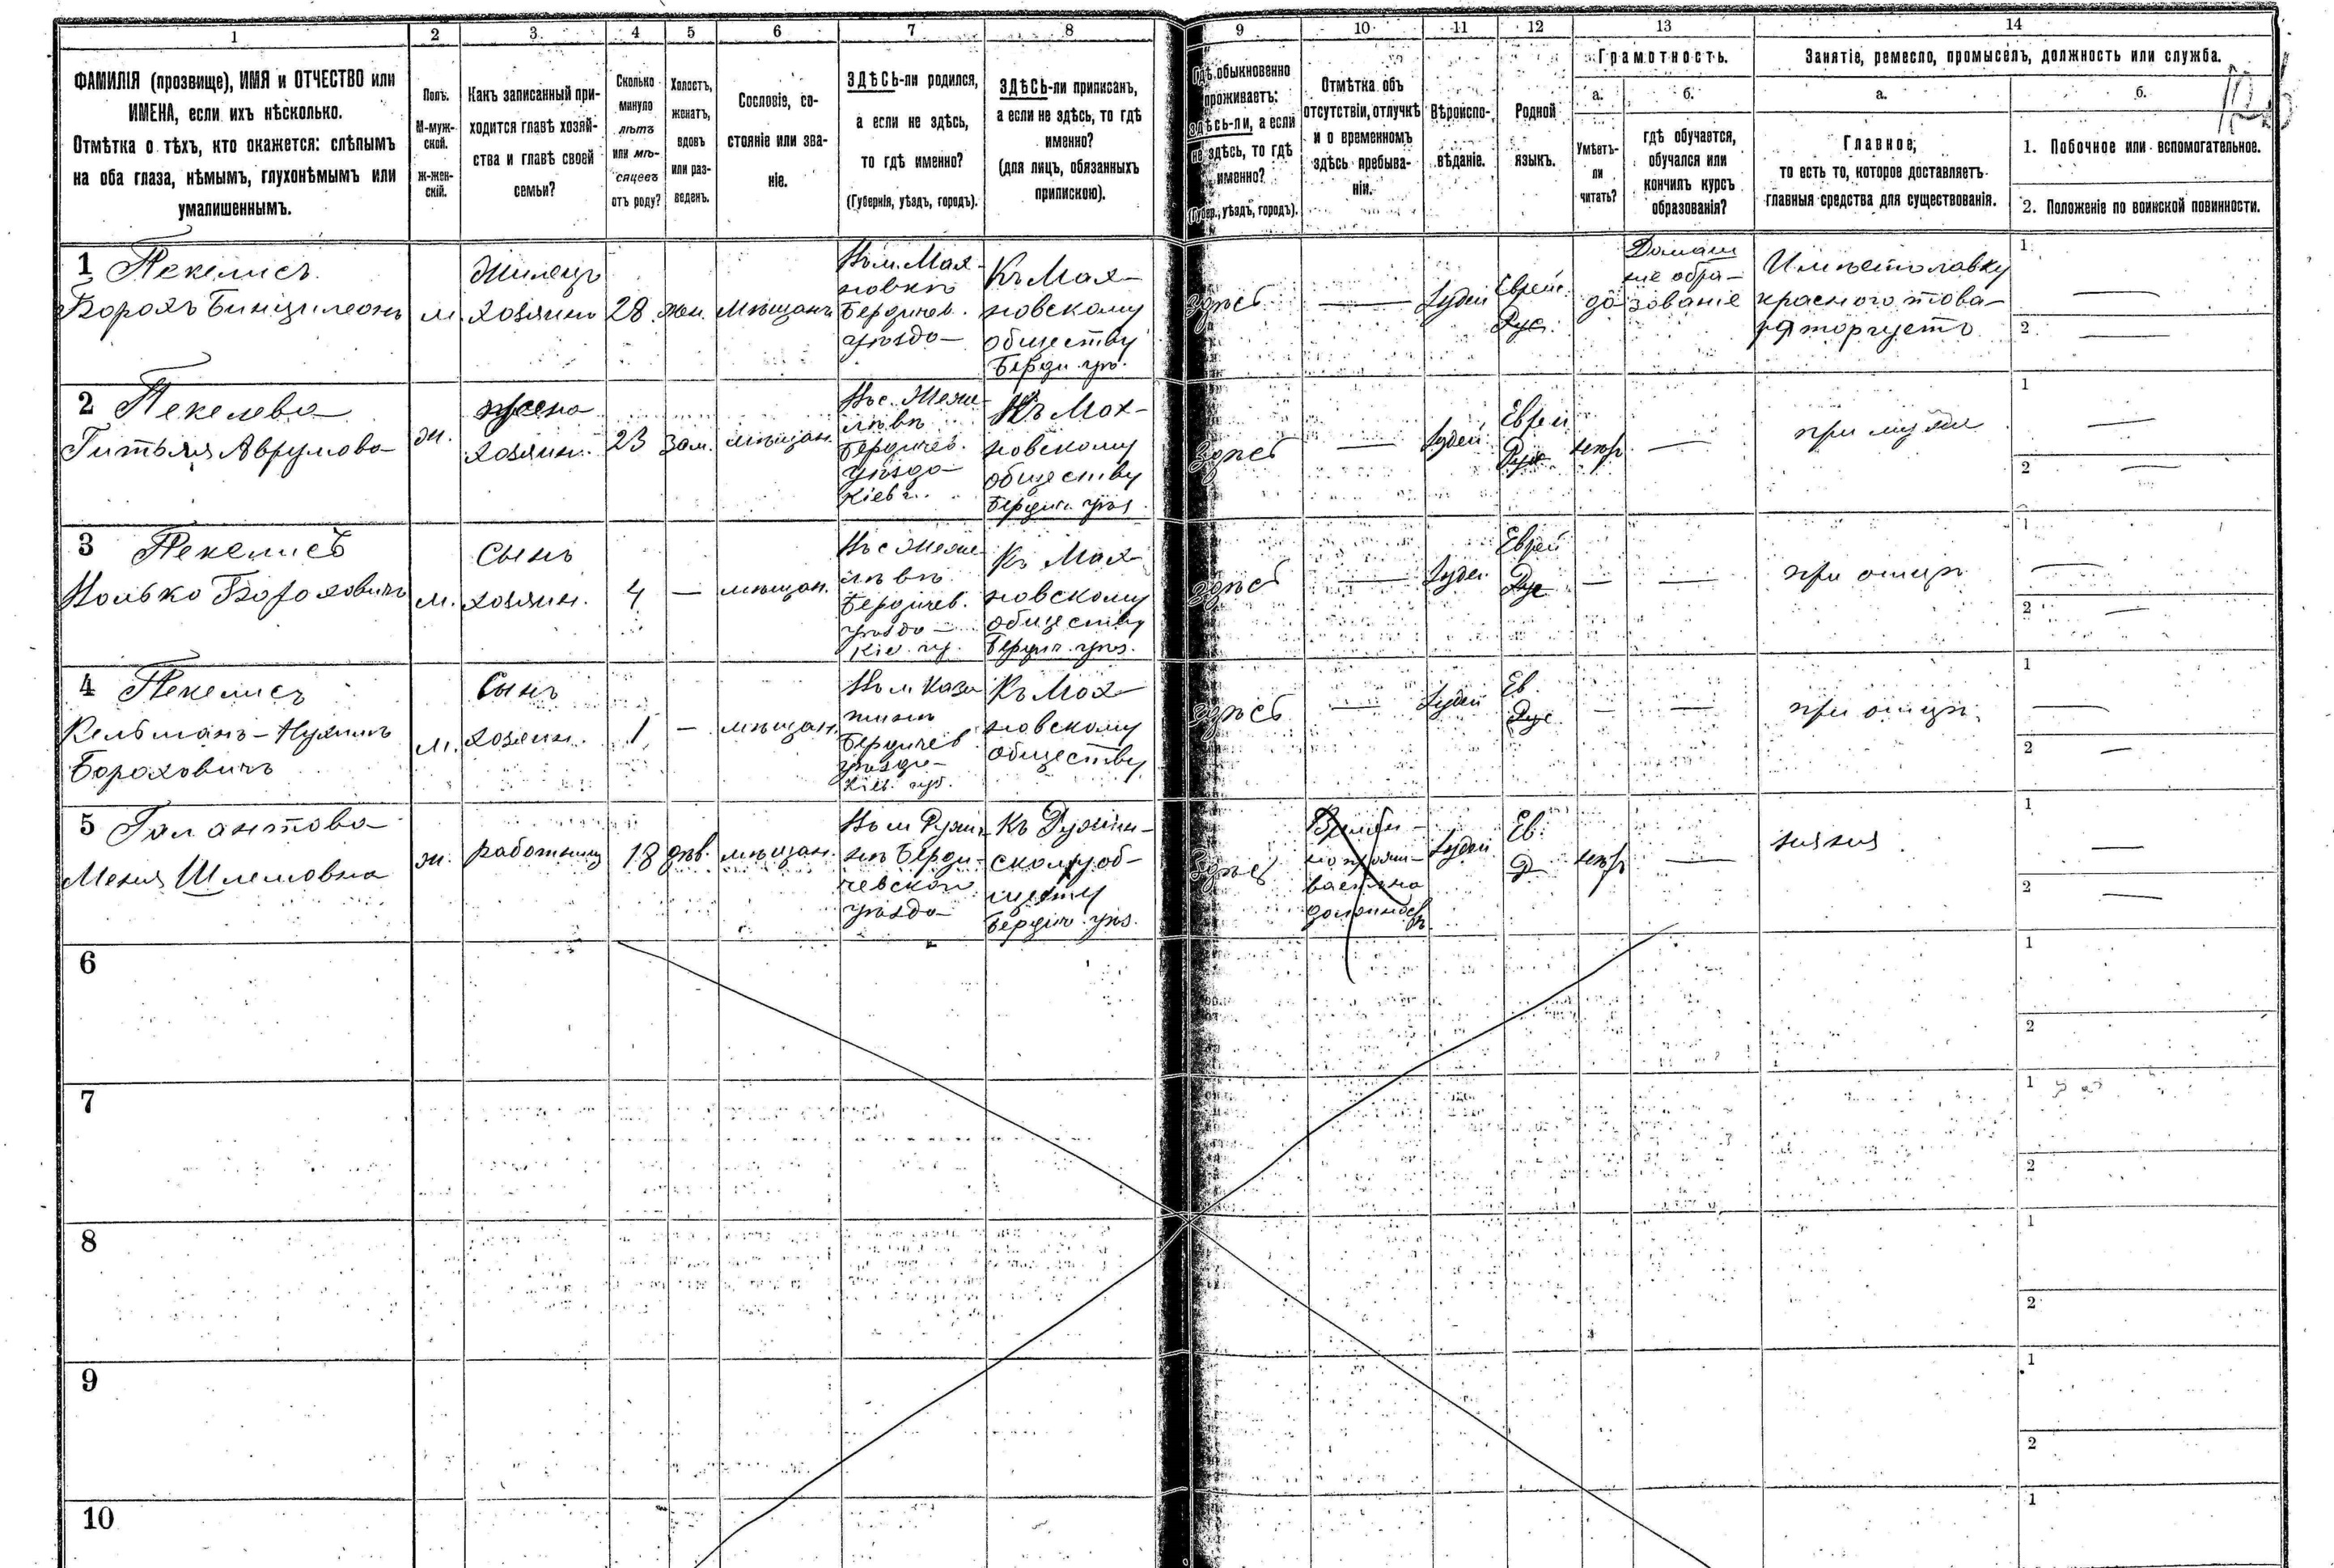 1 2 3 4 5 6 7 8 9 10 11 12 13 14
ФАМИЛІЯ (прозвище), ИМЯ и ОТЧЕСТВО или
ИМЕНА, если ихъ нѣсколько.
Отмѣтка о тѣхъ, кто окажется: слѣпымъ
на оба глаза, нѣмымъ, глухонѣмымъ или
умалишеннымъ.
Полъ.
М-муж-
ской.
ж-жен-
скій.
Какъ записанный при-
ходится главѣ хозяй-
ства и главѣ своей
семьи?
Сколько
минуло
лѣтъ
или мѣ-
сяцевъ
отъ роду?
Холостъ,
женатъ,
вдовъ
или раз-
веденъ.
Сословіе, со-
стояніе или зва-
ніе.
ЗДѢСЬ-ли родился,
а если не здѣсь,
то гдѣ именно?
(Губернія, уѣздъ, городъ).
ЗДѢСЬ-ли приписанъ,
а если не здѣсь, то гдѣ
именно?
(для лицъ, обязанныхъ
припискою).
Гдѣ обыкновенно
проживаетъ:
здѣсь-ли, а если
не здѣсь, то гдѣ
именно?
(Губер., уѣздъ, городъ).
Отмѣтка объ
отсутствіи, отлучкѣ
и о временномъ
здѣсь пребыва-
ніи.
Вѣроиспо-
вѣданіе.
Родной
языкъ.
Грамотность.
а.
Умѣетъ-
ли
читать?
б.
гдѣ обучается,
обучался или
кончилъ курсъ
образованія?
Занятіе, ремесло, промыселъ, должность или служба.
а.
Главное,
то есть то, которое доставляетъ
главныя средства для существованія.
б.
1. Побочное или вспомогательное.
2. Положеніе по воинской повинности.
1 Пекелисъ
Борохъ Бинцилеонъ
м.
Жилецъ
хозяинъ
28
жен.
мѣщанъ
Въ м. Мах-
новкѣ
Бердичев.
уѣзда
Къ Мах-
новскому
обществу
Берди. уѣ.
здѣсь
Іудей
Еврей.
Рус.
да
Домаш
ніе обра-
зованіе
Имѣетъ лавку
краснаго това-
ра торгуетъ
1
2
2 Пекелева
Гитля Аврумова
ж.
жена
хозяин.
23
зам.
мѣщан.
Бердичев.
уѣзда
Кіев г.
Къ Мах-
новскому
обществу
Бердич. уѣз.
здѣсь
Іудей
Еврей
Рус.
негр
при мужѣ
1
2
3 Пекелисъ
Волько Бороховичъ
м.
Сынъ
хозяин.
4
мѣщан.
Бердичев.
уѣзда
Кіе. гу.
Къ Мах-
новскому
обществу
Бердич. уѣз.
здѣсь
Іудей
Еврей
Рус
при отцѣ
1
2
4 Пекелисъ
Кельманъ-Нухимъ
Бороховичъ
м.
Сынъ
хозяин.
1
мѣщан.
Въ м Каза
тинѣ
Бердичев
уѣзда
Кіев. губ.
Къ Мах-
новскому
обществу
здѣсь
Іудей
Ев.
Рус.
при отцѣ
1
2
5 Галантова
Меня Шлемовна
ж.
работниц
18
дѣв.
мѣщан.
Въ м Ружи-
нѣ Берди-
чевскаго
уѣзда
Къ Ружин-
скому об-
ществу
Бердич. уѣз.
здѣсь
Іудей
Ев.
Р
негр
няня
1
2
6
1
2
7
1
2
8
1
2
9
1
2
10
1